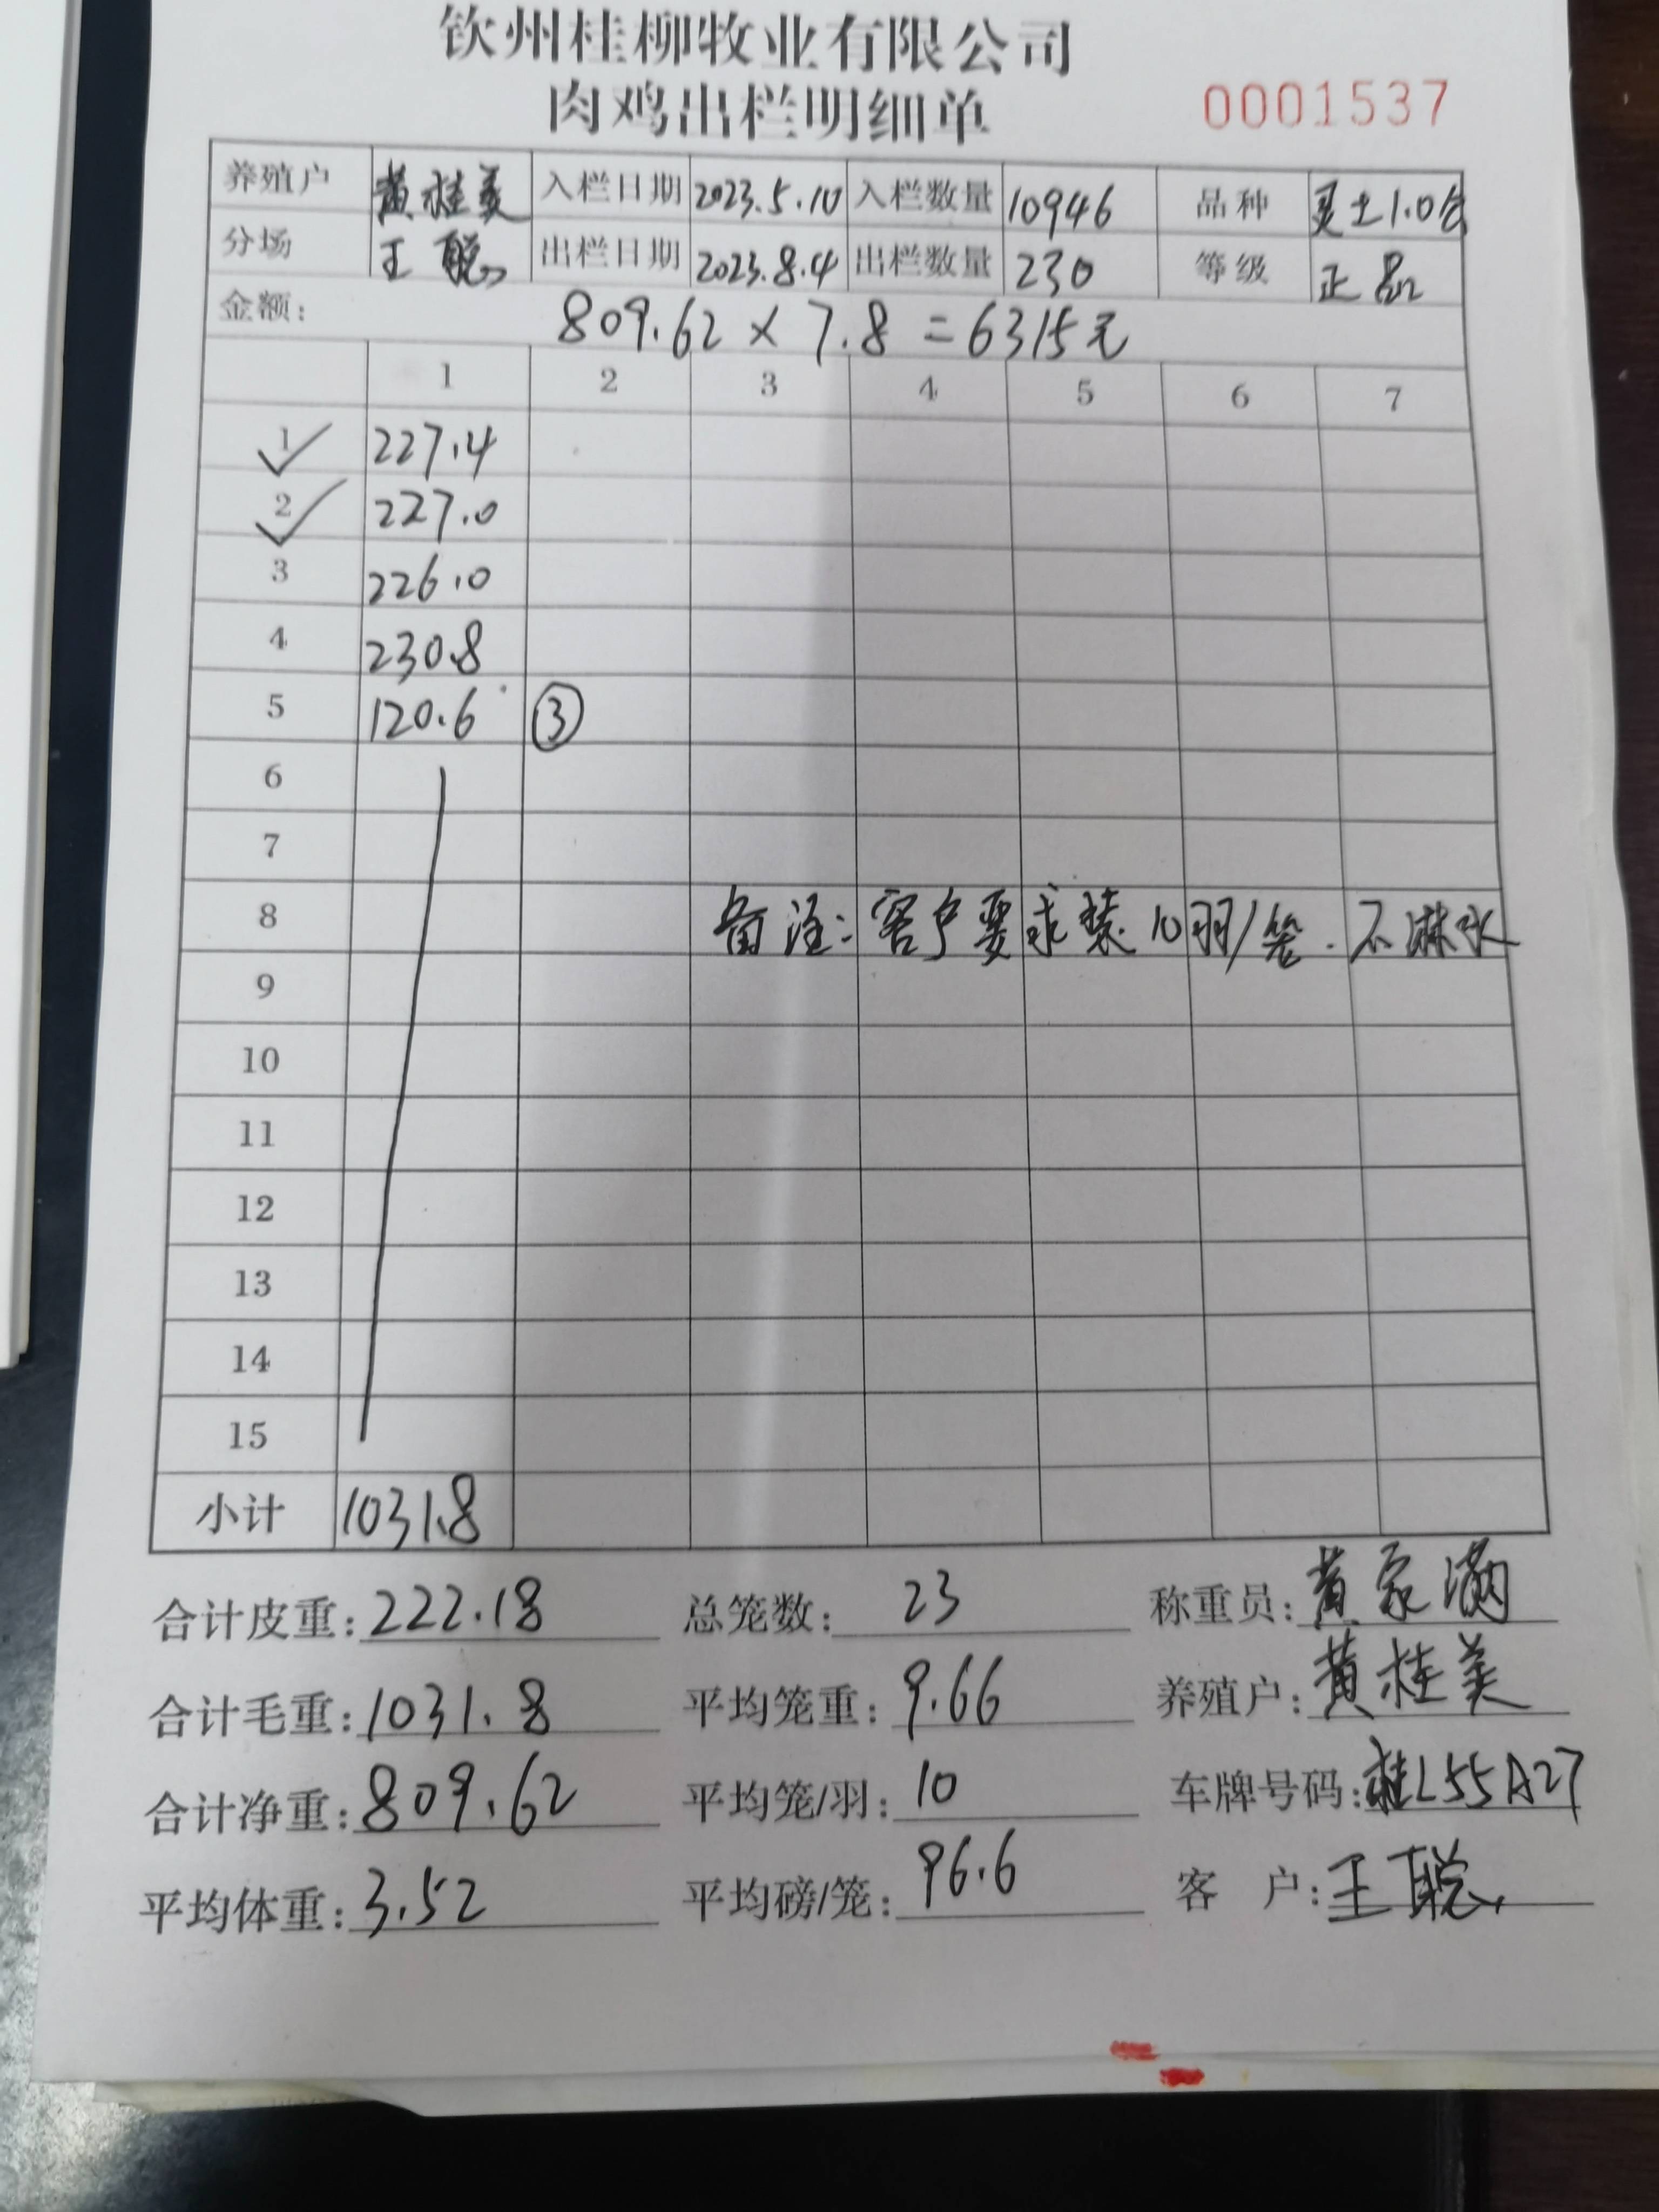 钦州桂柳牧业有限公司
肉鸡出栏明细单
0001537
养殖户 黄桂美 入栏日期 2023.5.10 入栏数量 10946 品种 灵土1.0
分场 王聪 出栏日期 2023.8.4 出栏数量 230 等级 正品
金额: 809.62 × 7.8 = 6315元
1 2 3 4 5 6 7
1 227.4
2 227.0
3 226.0
4 230.8
5 120.6 ③
6
7
8 备注: 客户要求装10羽/笼. 不淋水
9
10
11
12
13
14
15
小计 1031.8
合计皮重: 222.18 总笼数: 23 称重员: 黄家满
合计毛重: 1031.8 平均笼重: 9.66 养殖户: 黄桂美
合计净重: 809.62 平均笼/羽: 10 车牌号码: 桂L55A27
平均体重: 3.52 平均磅/笼: 96.6 客 户: 王聪